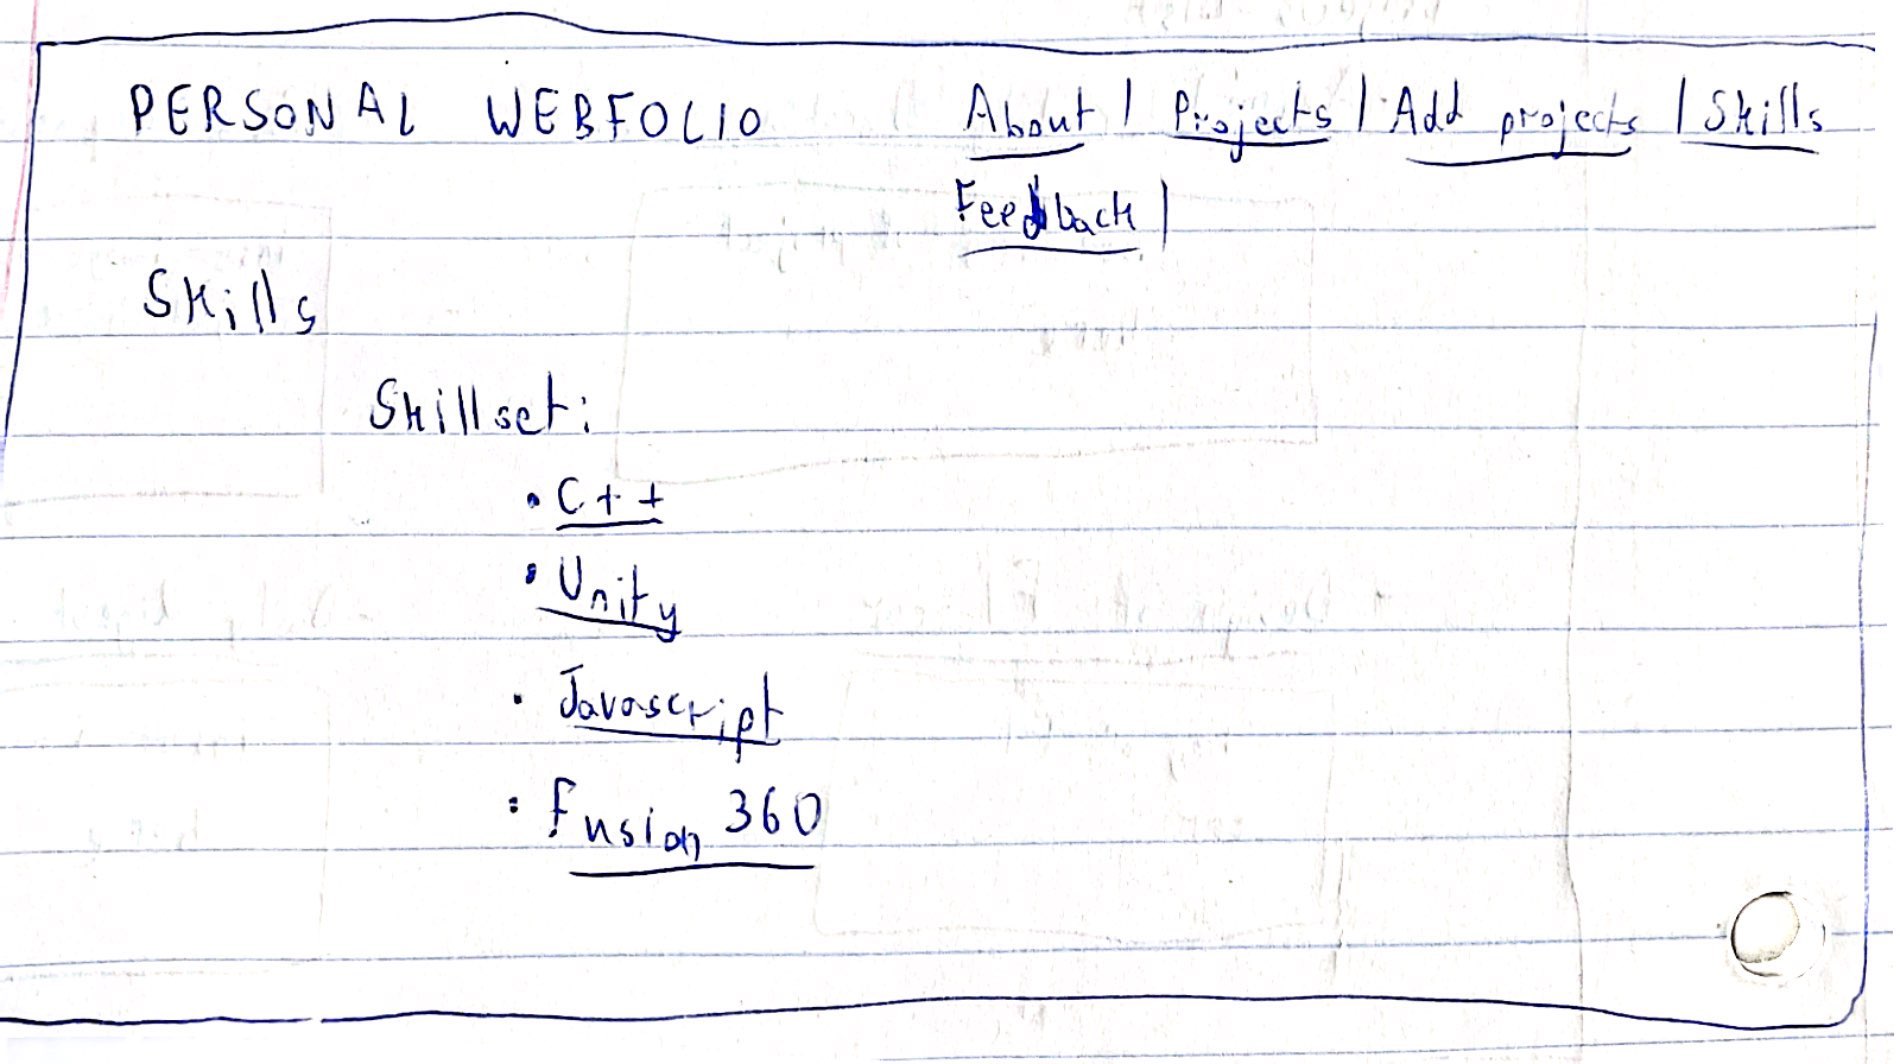 PERSONAL WEBFOLIO About | Projects | Add projects | Skills
Feedback |
Skills
Skillset:
• C++
• Unity
• Javascript
• Fusion 360